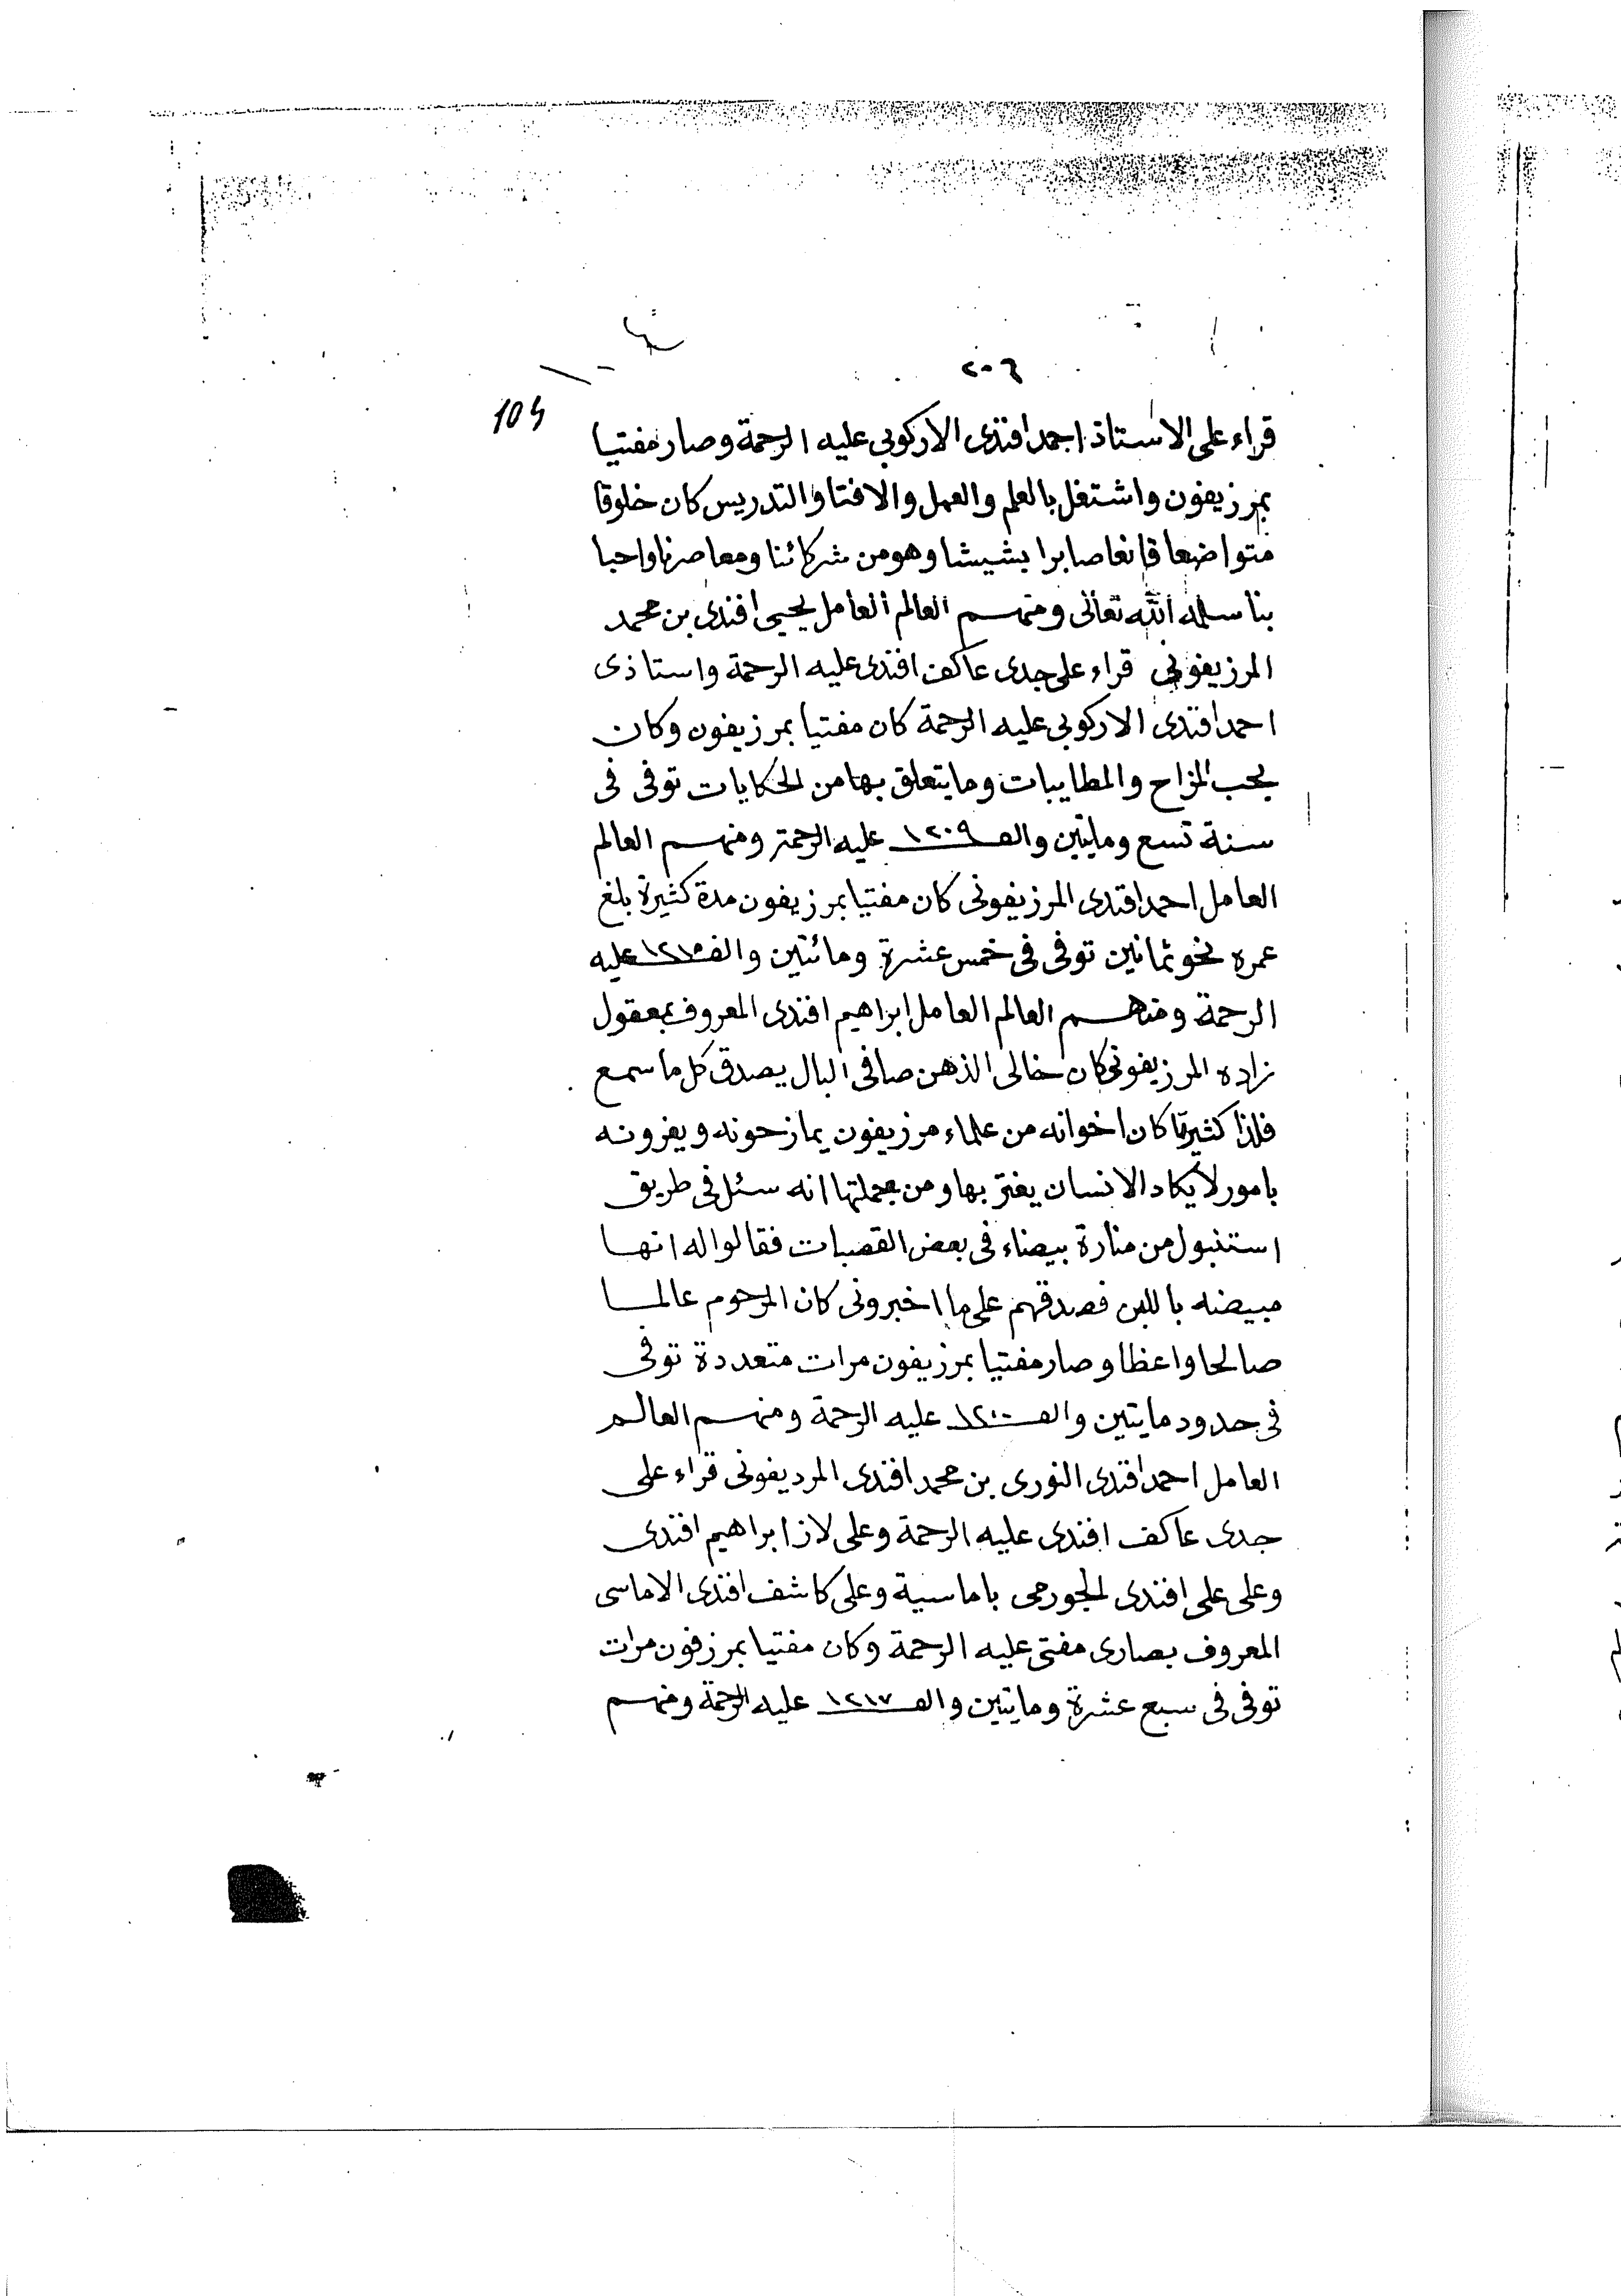 ٢٠٦
104
قراء على الاستاذ احمد افندى الاركوبى عليه الرحمة وصار مفتيا
بمرزيفون واشتغل بالعلم والعمل والافتا والتدريس كان خلوقا
متواضعا قانعا صابرا بشيشا وهو من شركائنا ومعاصرنا واحبا
بنا سلمه الله تعالى ومنهم العالم العامل يحيى افندى بن محمد
المرزيفونى قراء على جدى عاكف افندى عليه الرحمة واستاذى
احمد افندى الاركوبى عليه الرحمة كان مفتيا بمرزيفون وكان
يحب المزاح والمطايبات وما يتعلق بها من الحكايات توفى فى
سنة تسع ومايتين والف ١٢٠٩ عليه الرحمة ومنهم العالم
العامل احمد افندى المرزيفونى كان مفتيا بمرزيفون مدة كثيرة بلغ
عمره نحو ثمانين توفى فى خمس عشرة ومائتين والف ١٢١٥ عليه
الرحمة ومنهم العالم العامل ابراهيم افندى المعروف بمعقول
زاده المرزيفونى كان خالى الذهن صافى البال يصدق كل ما سمع
فلذا كثيرتا كان اخوانه من علماء مرزيفون يمازحونه ويغرونه
بامور لا يكاد الانسان يغتر بها ومن جملتها انه سئل فى طريق
استنبول من منارة بيضاء فى بعض القصبات فقالوا له انها
مبيضه باللبن فصدقهم على ما اخبرونى كان المرحوم عالما
صالحا واعظا وصار مفتيا بمرزيفون مرات متعددة توفى
فى حدود مايتين والف ١٢٠٠ عليه الرحمة ومنهم العالم
العامل احمد افندى النورى بن محمد افندى المرديفونى قراء على
جدى عاكف افندى عليه الرحمة وعلى لاز ابراهيم افندى
وعلى على افندى الجورمى باماسية وعلى كاشف افندى الاماسى
المعروف بصارى مفتى عليه الرحمة وكان مفتيا بمرزفون مرات
توفى فى سبع عشرة ومايتين والف ١٢١٧ عليه الرحمة ومنهم